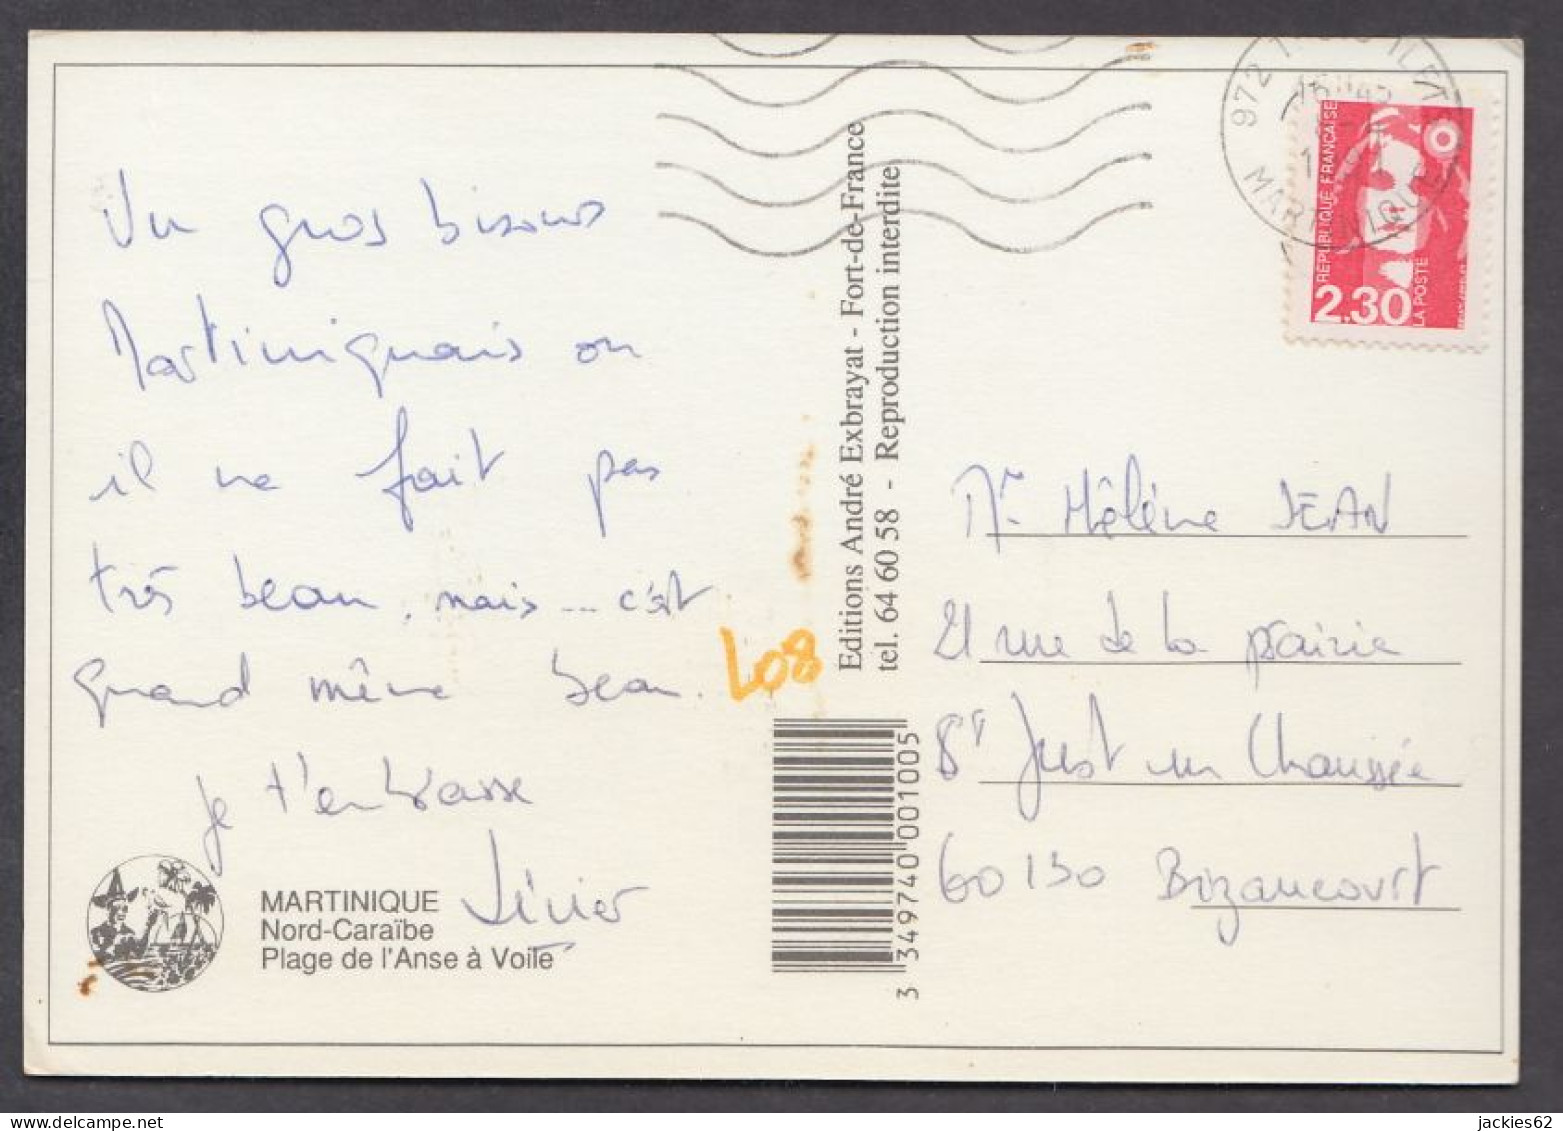 Un gros bisous
Martiniquais on
il ne fait pas
très beau, mais... c'est
grand même beau.
je t'embrasse
MARTINIQUE
Nord-Caraïbe
Plage de l'Anse à Voile
L08
Editions André Exbrayat - Fort-de-France
tel. 64 60 58 - Reproduction interdite
3 349740 001005
MARTINIQUE
RÉPUBLIQUE FRANÇAISE
2,30
LA POSTE
Mr Hélène JEAN
21 rue de la prairie
St Just en Chaussée
60130 Bizancourt
jackies62